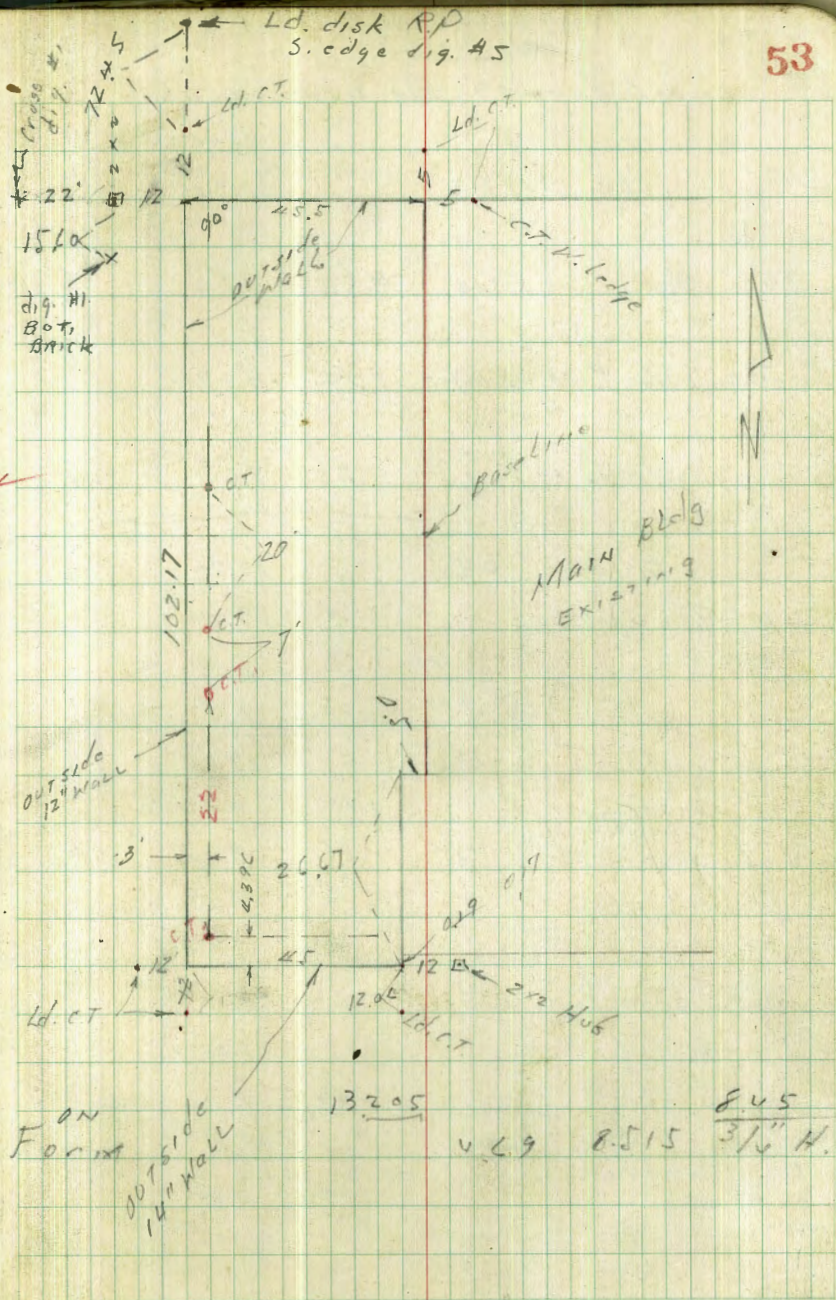 Ld. disk R.P
S. edge dig. #5
53
Cross
dig. #1
Ld. C.T.
Ld. C.T.
12
5
22'
12
90°
45.5
5
C.T. W. Ledge
15.60
OUTSIDE
WALL
dig. #1
BOT.
BRICK
N
C.T.
Baseline
20'
MAIN Bldg
EXISTING
102.17
C.T.
7'
C.T.
OUTSIDE
12" WALL
22
3'
26.67
4.396
C.T.
12'
45
12
2x2 Hub
12
Ld. C.T
Ld. C.T
ON
Form
OUTSIDE
14" WALL
13.205
8.515